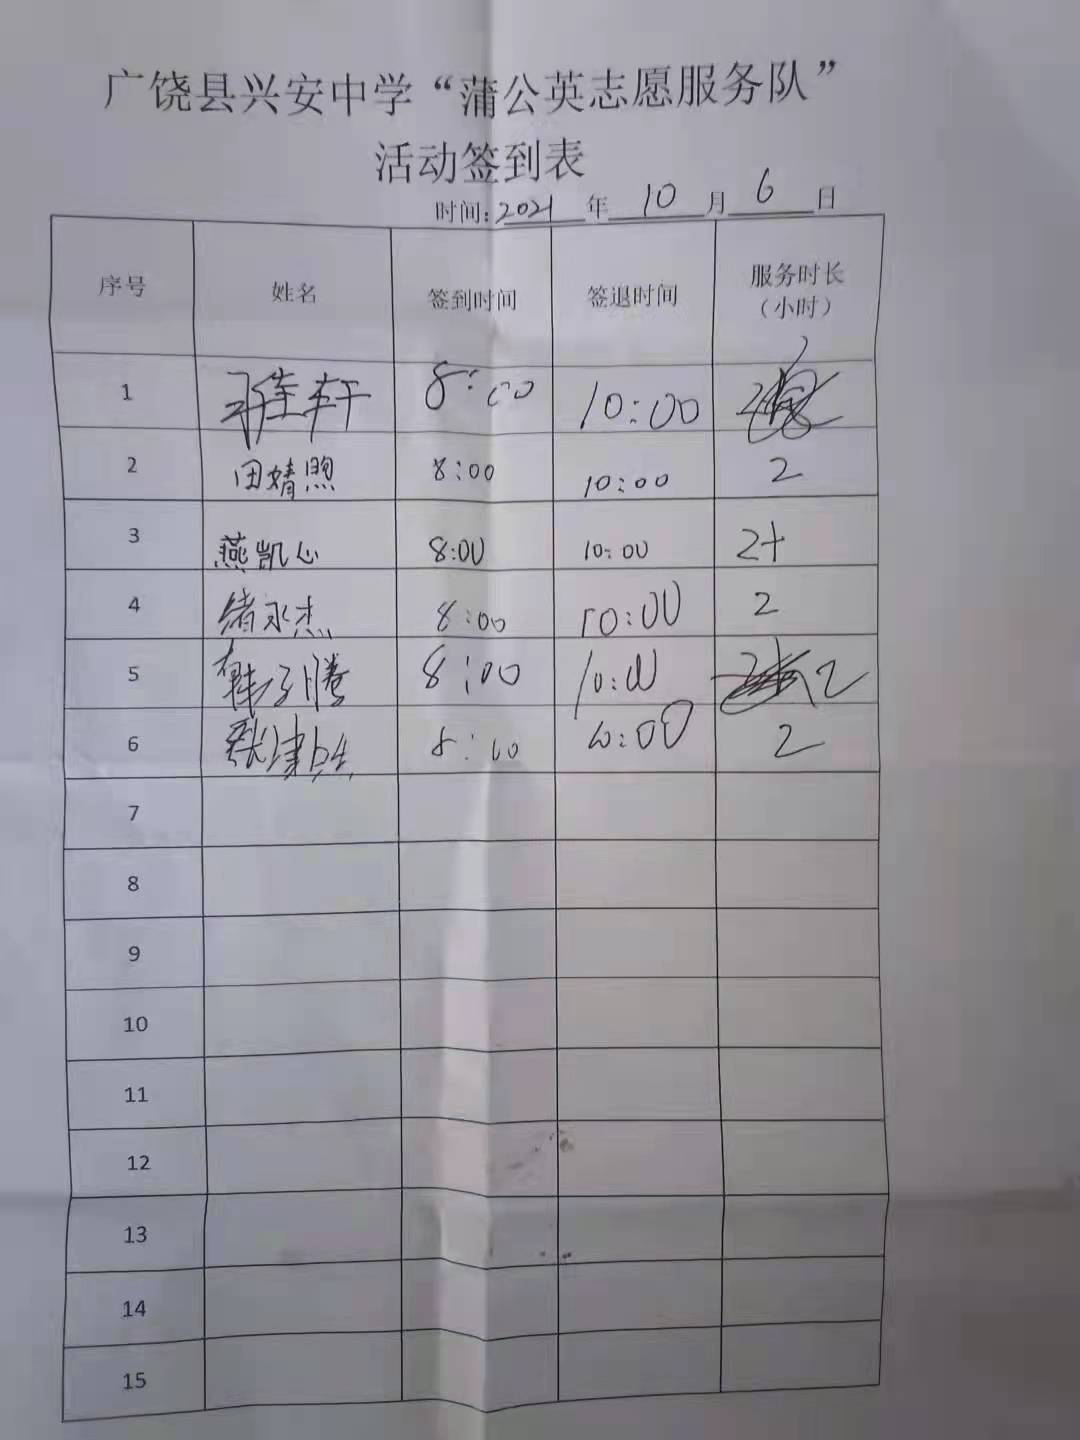 广饶县兴安中学“蒲公英志愿服务队”
活动签到表
时间:2021年10月6日
序号 姓名 签到时间 签退时间 服务时长（小时）
1 8:00 10:00
2 田婧煦 8:00 10:00 2
3 燕凯心 8:00 10:00 2+
4 绪永杰 8:00 10:00 2
5 韩子腾 8:00 10:00 2
6 8:00 10:00 2
7
8
9
10
11
12
13
14
15